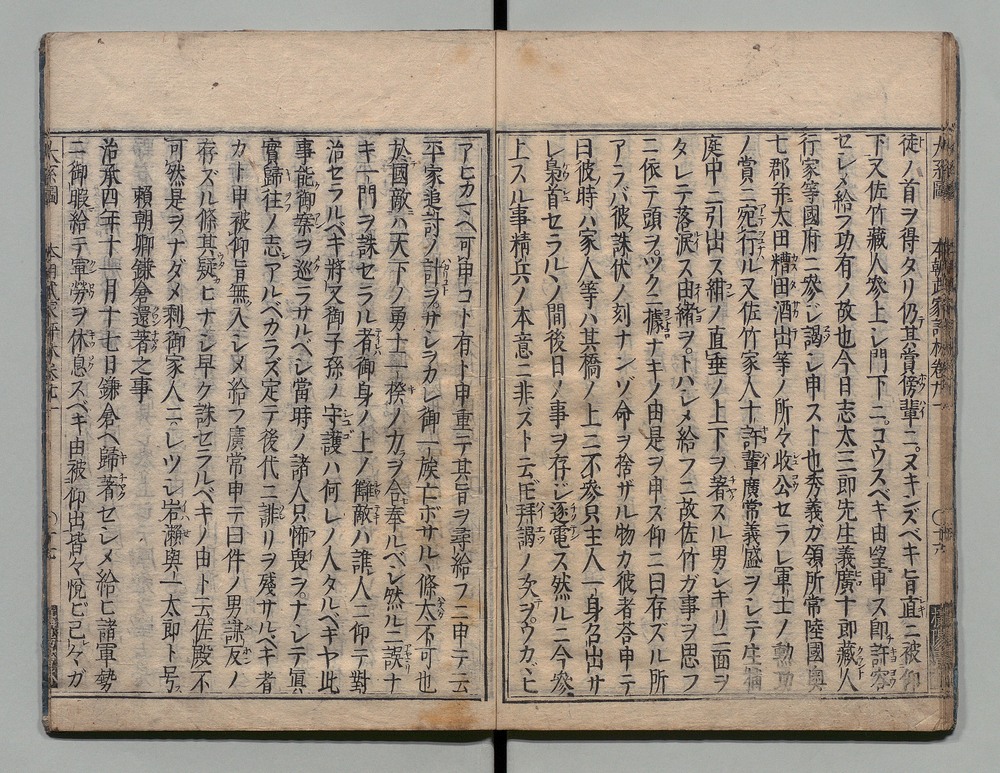 徒ノ首ヲ得タリ仍其賞傍輩ニヌキンズベキ旨直ニ被仰
下又佐竹藏人參上シ門下ニコウスベキ由望申ス即許容
セシメ給フ功有ノ故也今日志太三郎先生義廣十郎藏人
行家等國府ニ參ジ謁シ申スト也秀義ガ領所常陸國奥
七郡并太田糟田酒出等ノ所々收公セラレ軍士ノ勲功
ノ賞ニ宛行ル又佐竹家人十許輩廣常義盛ヲシテ生
庭中ニ引出ス紺ノ直垂ノ上下ヲ著スル男シキリニ面ヲ
タレテ落涙ス由緒ヲトハシメ給フニ故佐竹ガ事ヲ思フ
ニ依テ頭ヲツクニ據ナキノ由是ヲ申ス仰ニ曰存ズル所
アラバ彼誅伏ノ刻ナンゾ命ヲ捨ザル物カ彼者荅申テ
曰彼時ハ家人等ハ其橋ノ上ニ不參只主人一身召出サ
レ梟首セラルヽノ間後日ノ事ヲ存ジ逐電ス然ルニ今參
上スル事精兵ノ本意ニ非ズト云𪜈拜謁ノ次ヲウカヾヒ
アヒカマヘ可申コト有ト申重テ其旨ヲ尋給フニ申テ云
平家追討ノ計ヲサシヲカレ御一族亡ボサルヽ條太不可也
於國敵ハ天下ノ勇士一揆ノ力ヲ合奉ルベシ然ルニ誤ナ
キ一門ヲ誅セラル者御身ノ上ノ讎敵ハ誰人ニ仰テ對
治セラルベキ將又御子孫ノ守護ハ何レノ人タルベキヤ此
事能御案ヲ巡ラサルベシ當時ノ諸人只怖畏ヲナシテ眞
實歸往ノ志アルベカラズ定テ後代ニ誹リヲ殘サルベキ者
カト申被仰旨無入シメ給フ廣常申テ曰件ノ男謀反ノ
存ズル條其疑ヒナシ早ク誅セラルベキノ由ト云佐殿不
可然是ヲナダメ剰御家人ニレツシ岩瀬與一太郎ト号
賴朝卿鎌倉還著之事
治承四年十一月十七日鎌倉ヘ歸著セシメ給ヒ諸軍勢
ニ御暇給テ軍勞ヲ休息スベキ由被仰出皆々悦ビ己々ガ